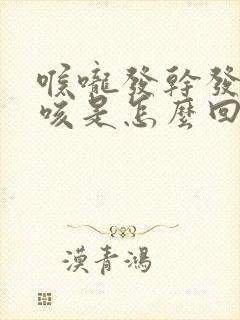 喉嚨發幹發
咳是怎麼回
漢青鴻